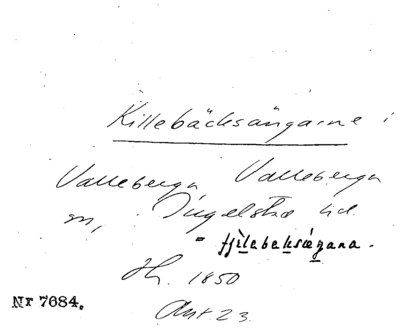 Killebäcksängarne i
Valleberga Valleberga
sn, Ingelstad hd.
= fjilebeksægana.
Hr. 1850
Nr 7684.
Ant 23.